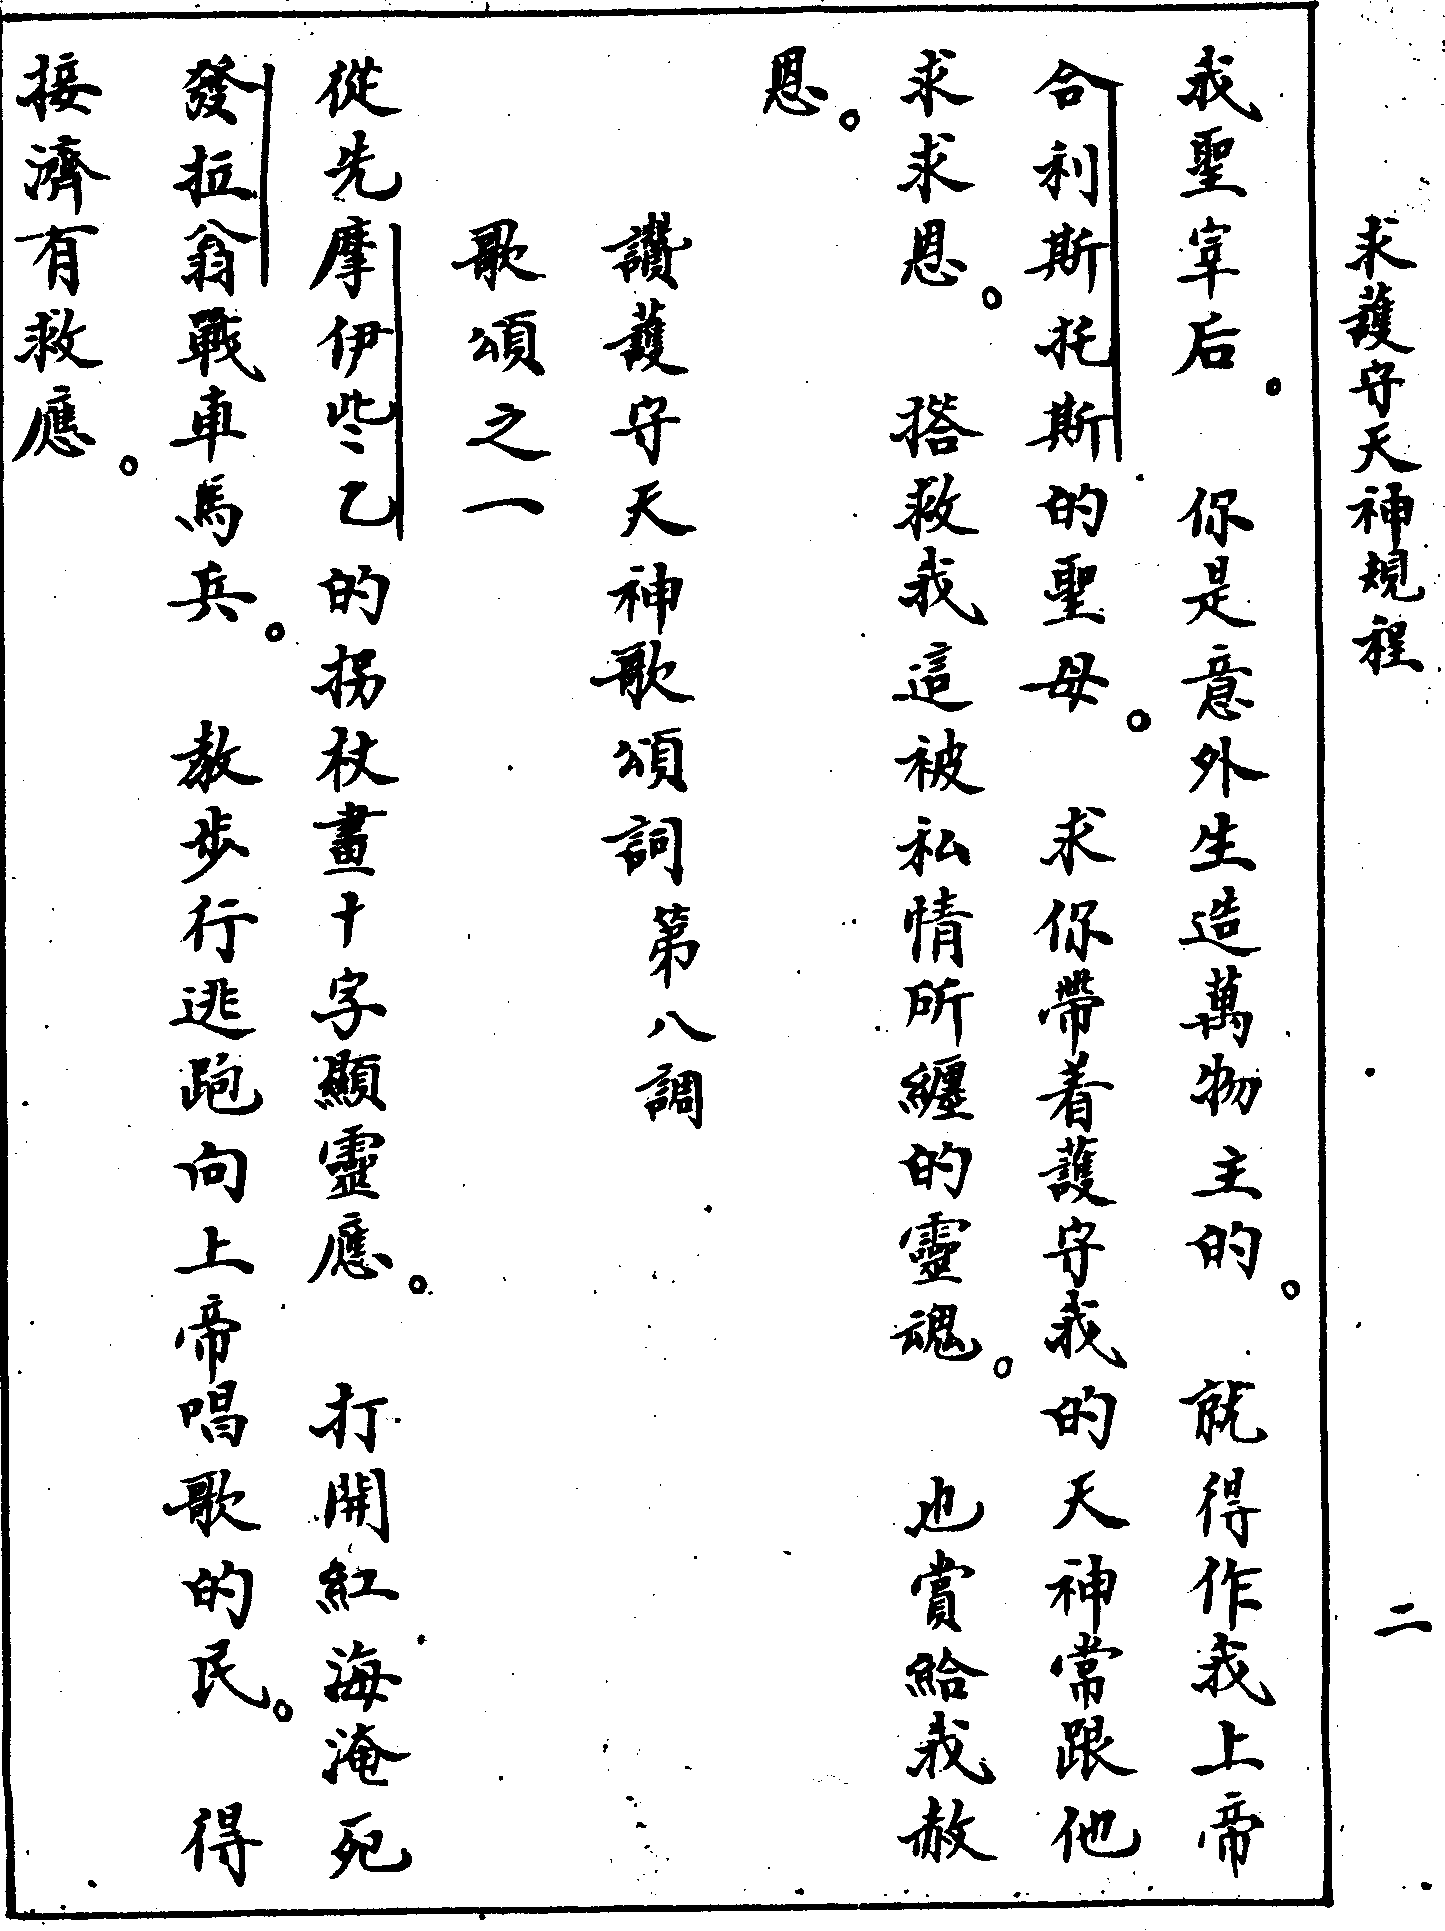 求護守天神規程 二
我聖宰后。 你是意外生造萬物主的。 就得作我上帝
合利斯托斯的聖母。 求你帶着護守我的天神常跟他
求求恩。 搭救我這被私情所纏的靈魂。 也賞給我赦
恩。
讚護守天神歌頌詞 第八調
歌頌之一
從先摩伊些乙的拐杖畫十字顯靈應。 打開紅海淹死
發拉翁戰車馬兵。 教步行逃跑向上帝唱歌的民。 得
接濟有救應。